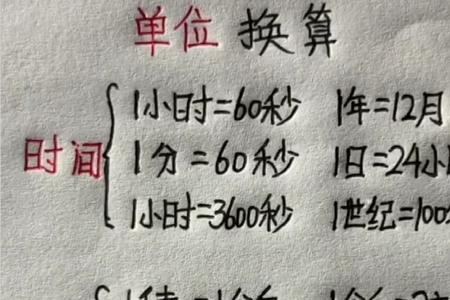 单位 换算
1小时=60秒 1年=12月
时间 1分=60秒 1日=24小
1小时=3600秒 1世纪=100